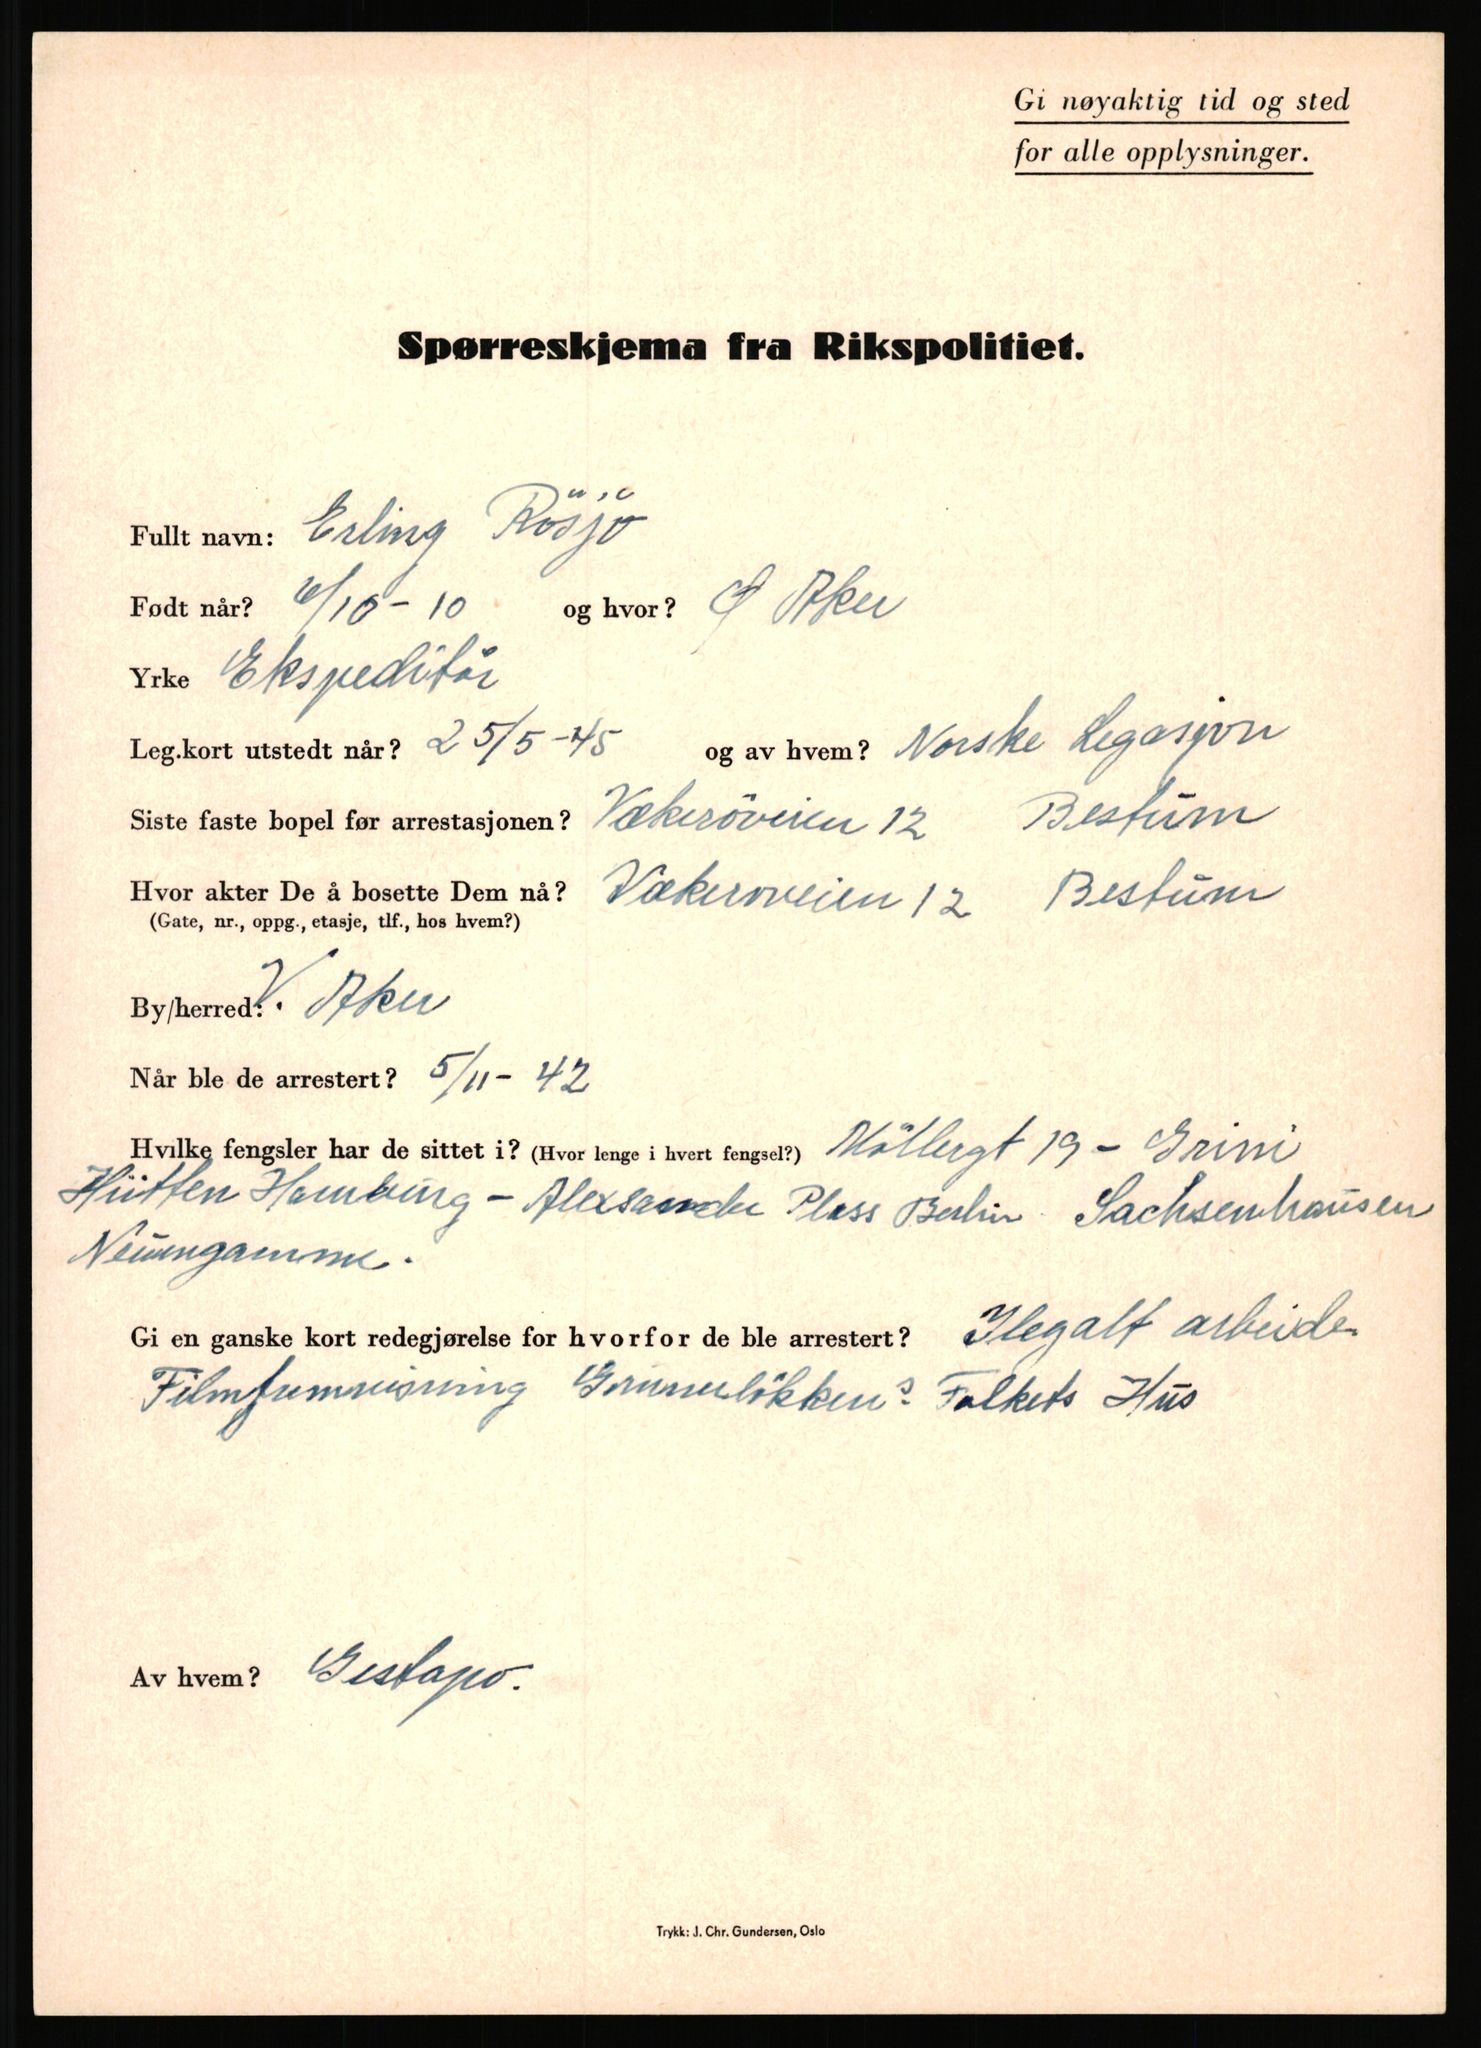 Gi nøyaktig tid og sted
for alle opplysninger.
Spørreskjema fra Rikspolitiet.
Fullt navn: Erling Rösjö
Født når? 6/10-10 og hvor? Ø Aker
Yrke Ekspeditör
Leg.kort utstedt når? 25/5-45 og av hvem? Norske Legasjon
Siste faste bopel før arrestasjonen? Vækeröveien 12 Bestum
Hvor akter De å bosette Dem nå? Vækeroveien 12 Bestum
(Gate, nr., oppg., etasje, tlf., hos hvem?)
By/herred: V. Aker
Når ble de arrestert? 5/11-42
Hvilke fengsler har de sittet i? (Hvor lenge i hvert fengsel?) Möllergt 19 - Grini
Hütten Hamburg - Alexsander Plass Berlin Sachsenhausen
Neuengamme.
Gi en ganske kort redegjørelse for hvorfor de ble arrestert? Ilegalt arbeide
Filmfremvisning Grünerlökkens Folkets Hus
Av hvem? Gestapo.
Trykk: J. Chr. Gundersen, Oslo